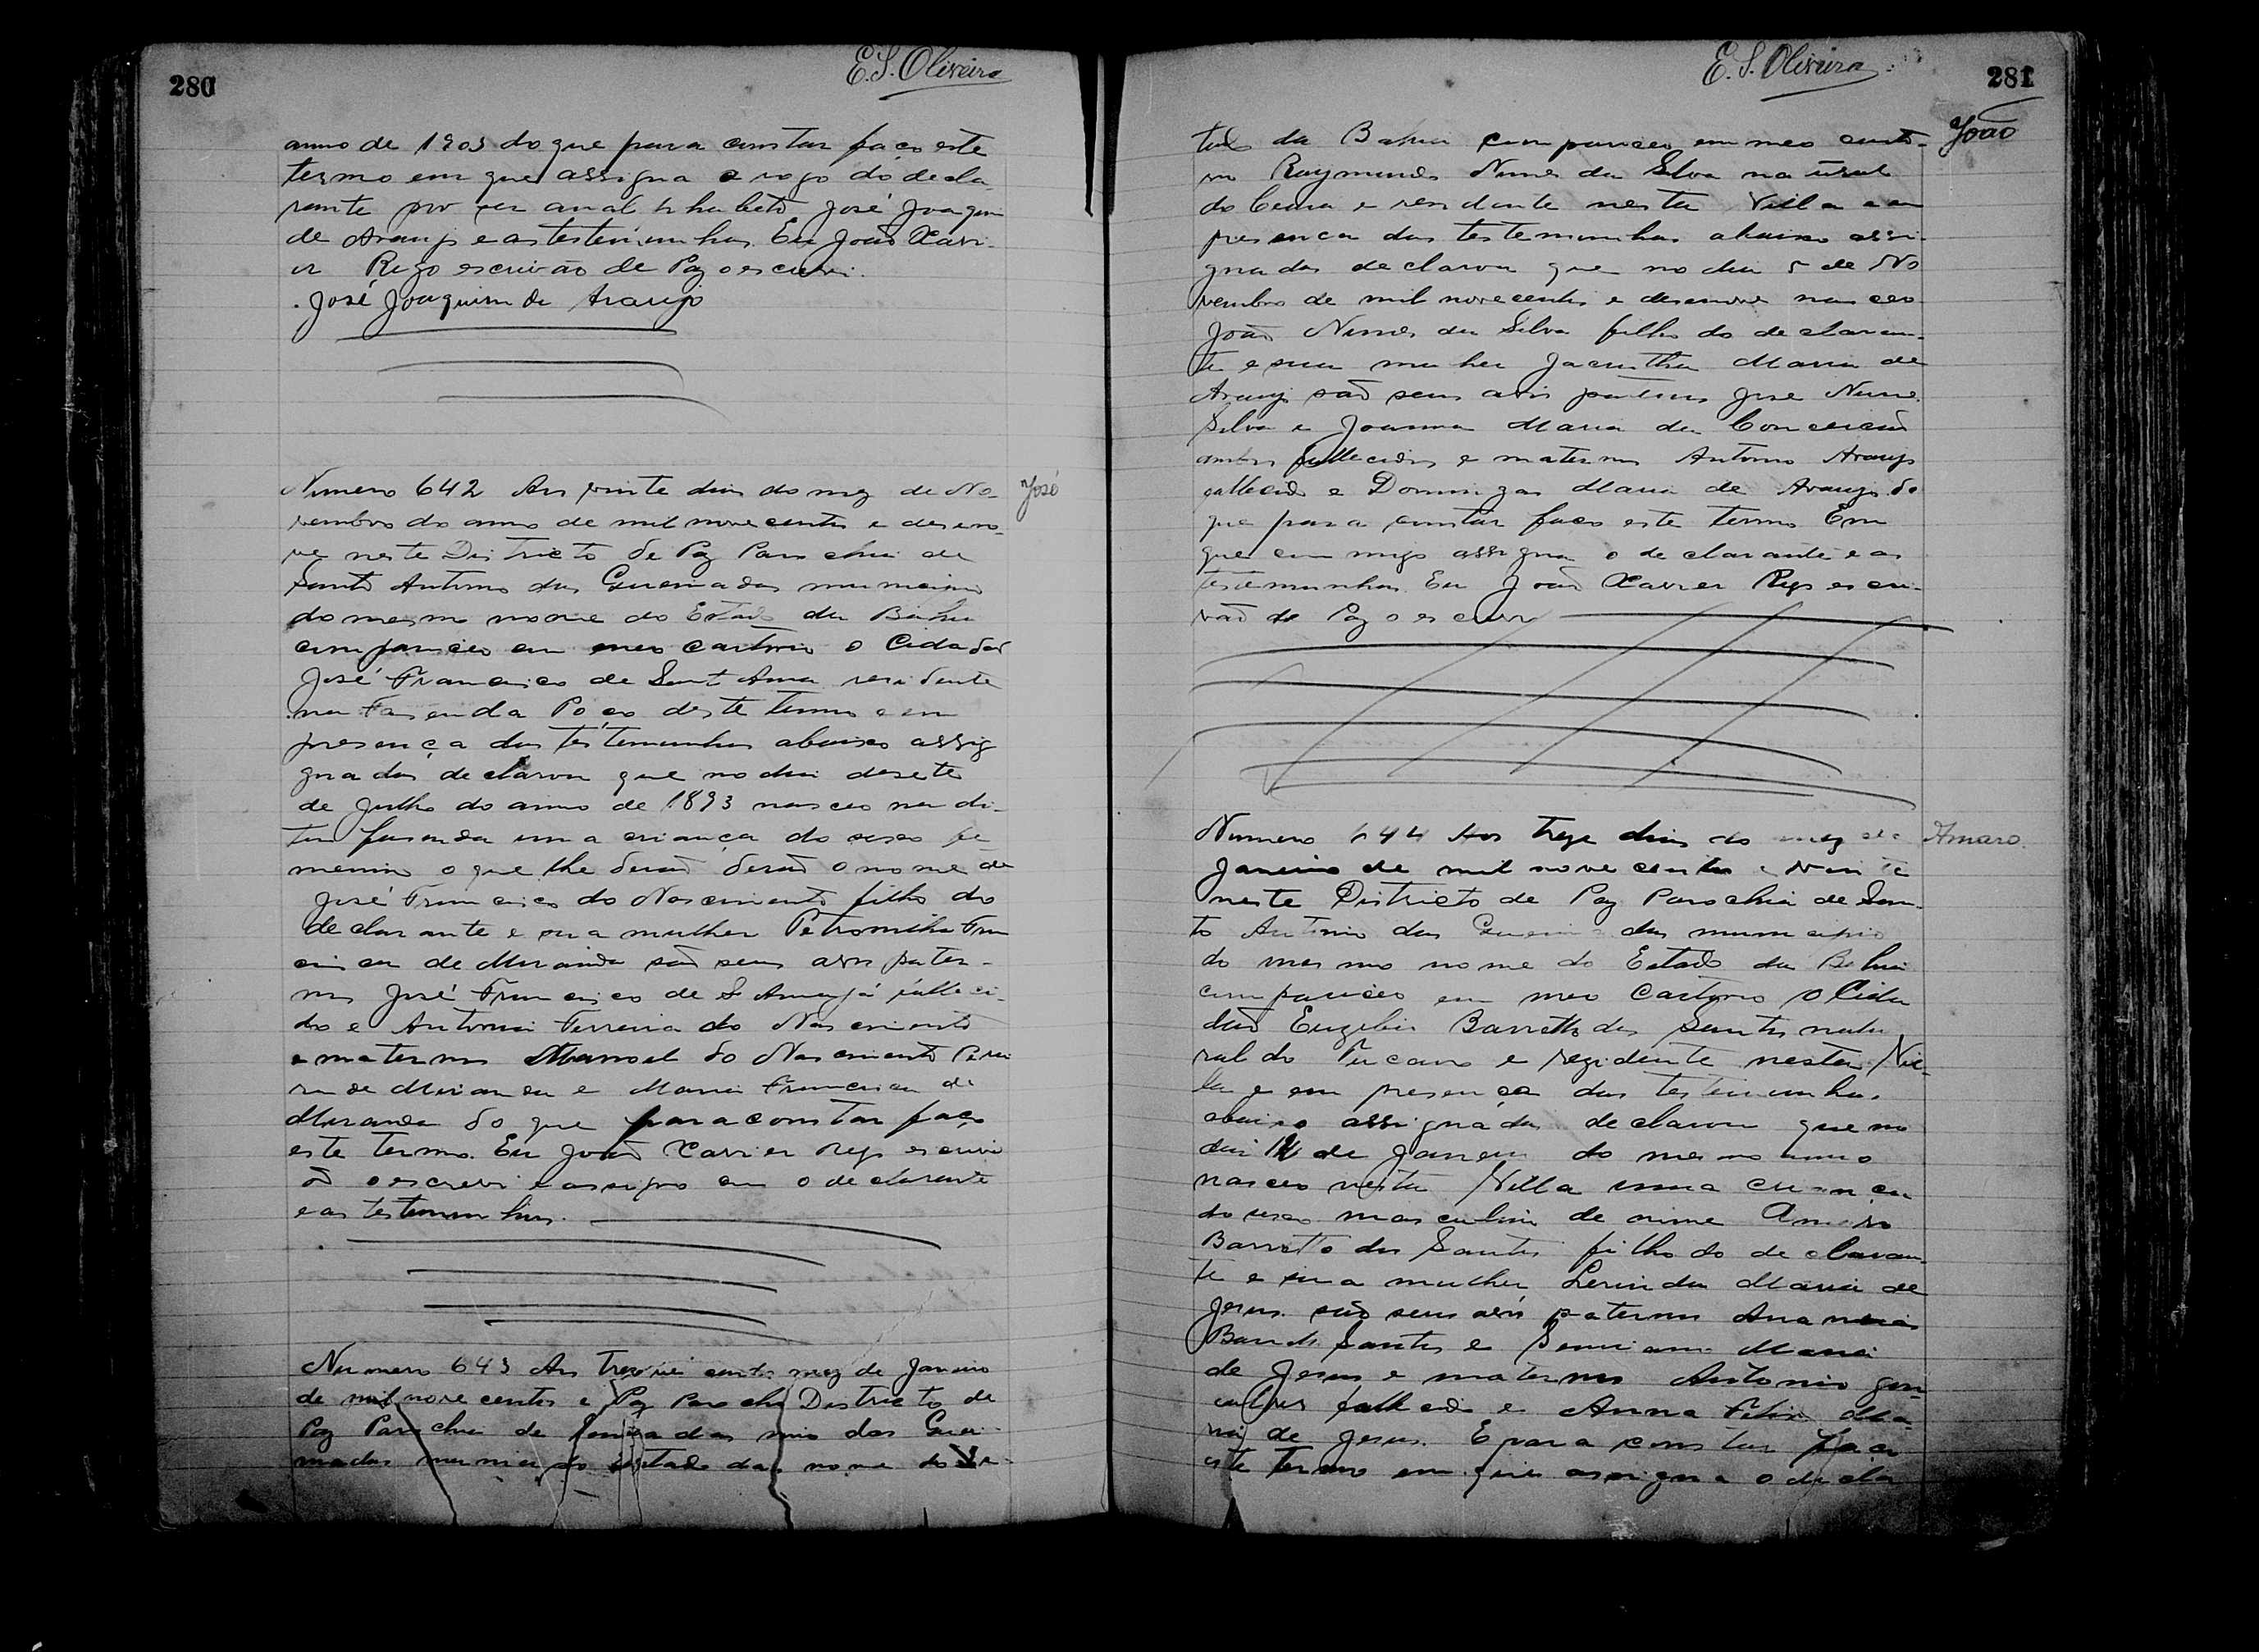 280
E.S. Oliveira
anno de 1903 do que para constar faço este
termo em que assigna a rogo do decla
rante por ser analphabeto José Joaquim
de Araujo e as testemunhas. Eu João Xavi-
er Rego escrivão de Paz o escrevi.
José Joaquim de Araujo
José
Numero 642 Aos vinte dias do mez de No-
vembro do anno de mil nove centos e deseno-
ve neste Districto de Paz Parochia de
Santo Antonio das Queimadas municipio
do mesmo nome do Estado da Bahia
compareceo em meo cartorio o Cidadão
José Francisco de Sant Anna residente
na Fasenda Poço deste termo e em
presença das testemunhas abaixo assig
gnadas declarou que no dia desete
de Julho do anno de 1893 nasceo na di-
ta fasenda uma criança do sexo fe
menino o que lhe derão derão o nome de
José Francisco do Nascimento filho do
declarante e sua mulher Petronilha Fran
cisca de Miranda são seus avos pater-
nos José Francisco de S Anna já falleci-
do e Antonia Ferreira do Nascimento
e maternos Manoel do Nascimento Perei
ra de Miranda e Maria Francisca de
Miranda do que para constar faço
este termo. Eu João Xavier Rego escrivi
ão o escrevi e assigno com o declarante
e as testemunhas.
Numero 643 Aos mez de Janeiro
de mil nove centos e Paz Parochia Districto de
Paz Parochia de das Quei-
madas nome do
E.S. Oliveira
281
João
tado da Bahia compareceo em meo carto-
rio Raymundo Nunes da Silva natural
do Ceara e residente nesta Villa e em
presença das testemunhas abaixo assi-
gnadas declarou que no dia 5 de No
vembro de mil novecentos e desenove nasceo
João Nunes da Silva filho do declaran-
te e sua mulher Jacintha Maria de
Araujo são seus avós paternos José Nunes
Silva e Joanna Maria da Conceicão
ambos fallecidos e maternos Antonio Araujo
fallecido e Domingas Maria de Araujo do
que para constar faco este termo Em
que com migo assigna o declarante e as
testemunhas. Eu João Xavier Rego escri-
vão de Paz o escrevi
Amaro
Numero 644 Aos treze dias do mez de
Janeiro de mil nove centos e vinte
neste Districto de Paz Parochia de San-
to Antonio das Queimadas municipio
do mesmo nome do Estado da Bahia
compareceo em meo Cartorio o Cida
dão Euzebio Barretto dos Santos natu
ral do Tucano e rezidente nesta Vil-
la e em presença das testemunhas
abaixo assignadas declarou que no
dia de Janeiro do mesmo anno
nasceo nesta Villa uma criança
do sexo masculino de nome Amaro
Barreto dos Santos filho do declaran-
te e sua mulher Maria de
Jesus são seus avós paternos Ananias
Santos e Maria
de Jesus e maternos Antonio Gon-
calves fallecido e Anna Felix Ma-
ria de Jesus. E para constar faço
este termo em que assigna o decla